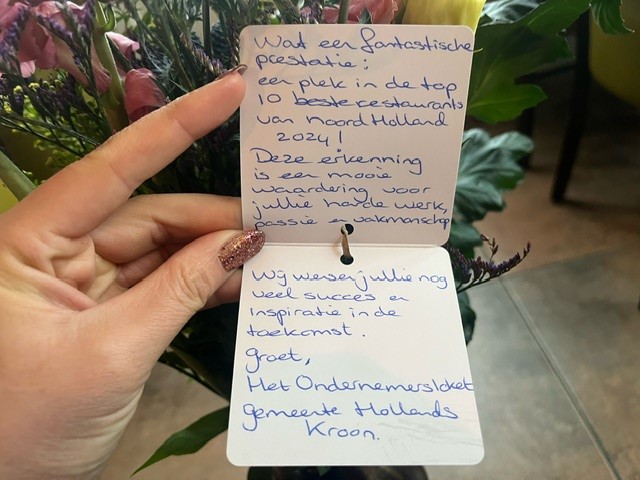 Wat een fantastische
prestatie:
een plek in de top
10 beste restaurants
van Noord Holland
2024!
Deze erkenning
is een mooie
waardering voor
jullie harde werk,
passie en vakmanschap
Wij wensen jullie nog
veel succes en
inspiratie in de
toekomst.
groet,
Het Ondernemersloket
gemeente Hollands
Kroon.